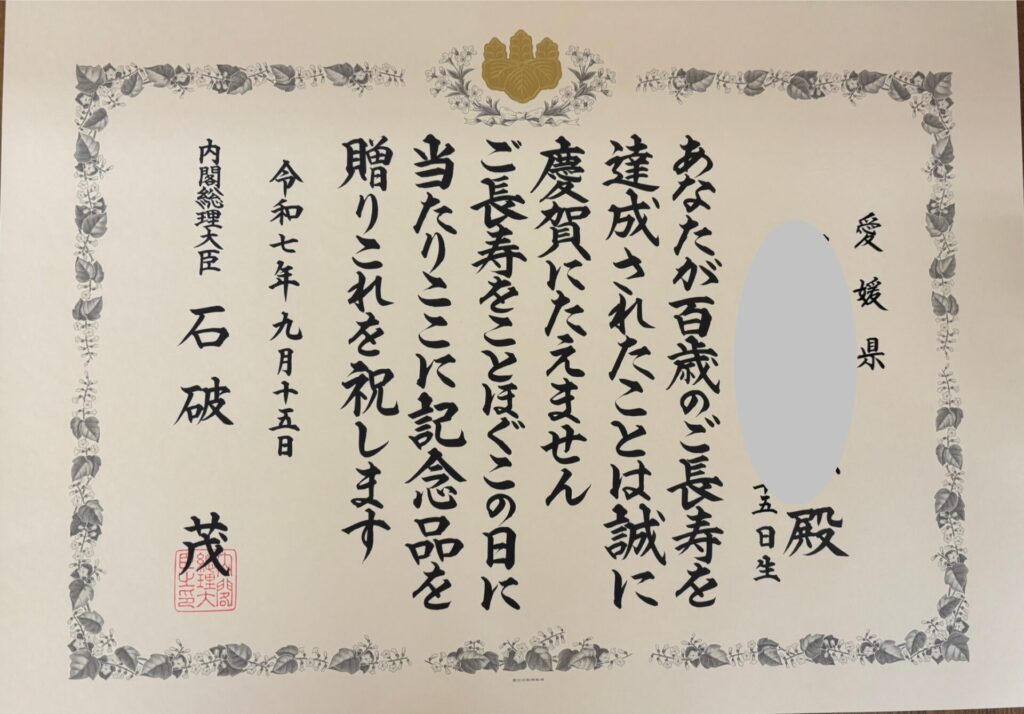 愛媛県
殿
五日生
あなたが百歳のご長寿を
達成されたことは誠に
慶賀にたえません
ご長寿をことほぐこの日に
当たりここに記念品を
贈りこれを祝します
令和七年九月十五日
内閣総理大臣 石破 茂